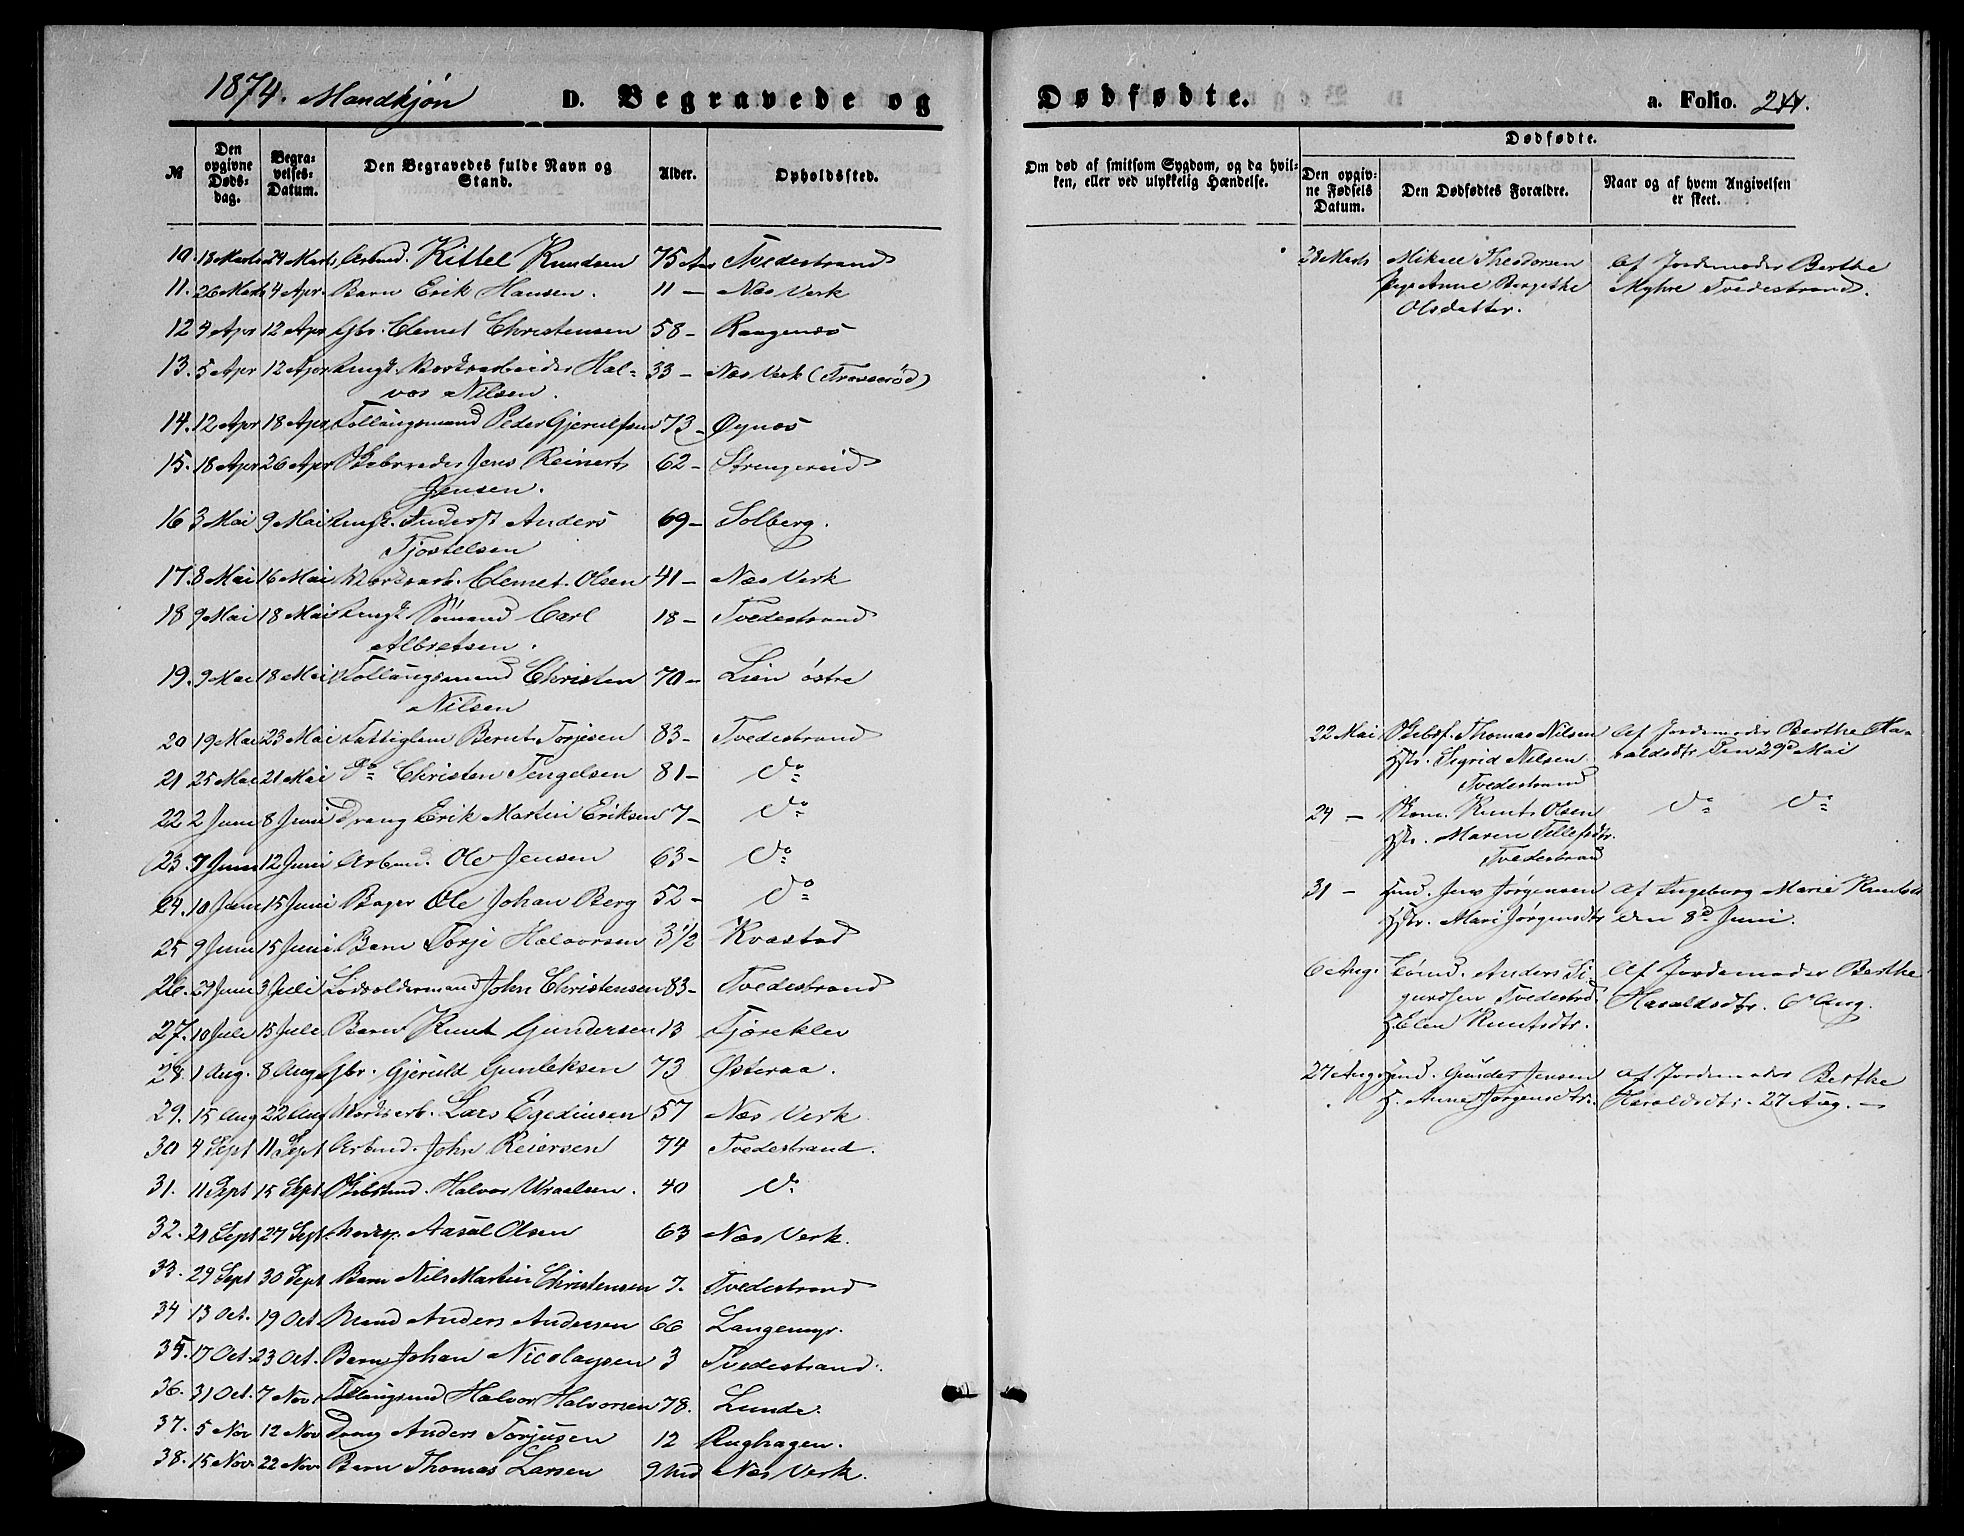 1874. Mandkjøn D. Begravede og Dødfødte. a. Folio. 244.
№ Den opgivne Døds-dag. Begra-velses-Datum. Den Begravedes fulde Navn og Stand. Alder. Opholdssted. Om død af smitsom Sygdom, og da hvil-ken, eller ved ulykkelig Hændelse. Dødfødte. Den opgiv-ne Fødsels Datum. Den Dødfødtes Forældre. Naar og af hvem Angivelsen er skeet.
10. 18 Marts 24 Marts Arbmd. Kittel Knudsen 75 Aar Tvedestrand
23 Marts Mikael Theodorsen Af Jordemoder Berthe
11. 26 Marts 4 Apr. Barn Erik Hansen. 11 – Næs Verk
Pige Anne Bergithe Myhre Tvedestrand.
Olsdatter.
12 4 Apr 12 Apr Gbr. Clemet Christensen 58 – Raagenæs
13. 5 Apr 12 Apr Ungk. Værksarbeider Hal-
vor Nilsen. 33 – Næs Verk
14. 12 Apr 18 Apr Follaugsmand Peder Gjerulfsen 73 – Øynæs
15. 18 Apr 26 Apr Jens Reinert
Jensen. 62 – Strengereid
16 3 Mai 9 Mai Anders
Tjostelsen 69 – Solberg.
17. 8 Mai 16 Mai Værksarb. Clemet Olsen 41 – Næs Verk
18 9 Mai 18 Mai Ungk. Sømand Carl
Albretsen. 18 – Tvedestrand
19. 9 Mai 18 Mai Follaugsmand Christen
Nilsen 70 – Lien østre
20 19 Mai 23 Mai Fattiglem Bernt Torjesen 83 – Tvedestrand
22 Mai Thomas Nilsen Af Jordemoder Berthe Ha-
Hstr. Sigrid Nilsen raldsdtr. Den 29d Mai
Tvedestrand
21 25 Mai 21 Mai Do Christen Tengelsen 81 – Do
22 2 Juni 8 Juni Dreng Erik Martin Eriksen 7 – Do
24 – Knut Olsen Do Do
Hstr. Maren Tellefsdtr.
Tvedestrand
23. 7 Juni 12 Juni Arbmd. Ole Jensen 63 – Do
24. 10 Juni 15 Juni Bager Ole Johan Berg 52 – Do
31 – Jens Jørgensen Af Ingeborg Marie Knuts
Hstr. Mari Jørgensdtr den 8d Juni.
25 9 Juni 15 Juni Barn Torje Halvorsen 3½ Kvastad
26. 27 Juni 3 Juli Lodsoldermand John Christensen 83 – Tvedestrand
6 Aug. Sømd. Anders Si- Af Jordemoder Berthe
gurdsen Tvedestrd. Haraldsdtr. 6d Aug.
H. Elen Knutsdtr.
27. 10 Juli 15 Juli Barn Knut Gundersen 13 Fjæreklev
28. 1 Aug. 8 Aug Gbr. Gjeruld Gunleksen 73 Østeraa.
27 Aug Gunder Jensen Af Jordemoder Berthe
H. Anne Jørgensdtr. Haraldsdtr. 27 Aug. –
29. 15 Aug 22 Aug Værksarb. Lars Egedinsen 57 Næs Verk
30 4 Sept 11 Sept Arbmd. John Reiersen 74 Tvedestrand.
31. 11 Sept 15 Sept Halvor Wraalsen. 40 Do
32. 21 Sept 27 Sept. Aasul Olsen 63 Næs Verk.
33. 29 Sept 30 Sept Barn Nils Martin Christensen 7. Tvedestrand
34 13 Oct. 19 Oct Mand Anders Andersen 66 Langemyr.
35. 17 Oct. 23 Oct. Barn Johan Nicolaysen 3 Tvedestrand.
36. 31 Oct. 7 Nov Follaugsmd Halvor Halvorsen 78. Lunde.
37. 5 Nov 12 Nov Dreng Anders Torjusen 12 Rughagen.
38. 15 Nov. 22 Nov. Barn Thomas Larsen 9 Md Næs Verk.